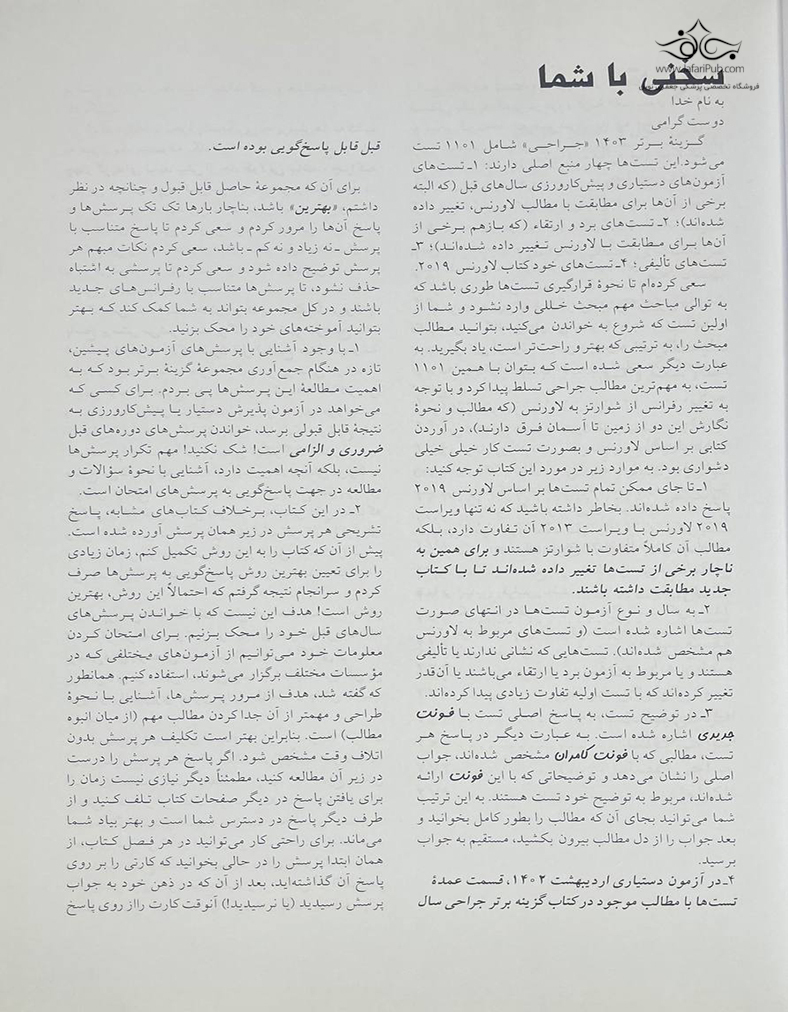 بهائی
www.JafariPub.com
فروشگاه تخصصی پزشکی جعفری نوین
سخنی با شما
به نام خدا
دوست گرامی
گزینهٔ برتر ۱۴۰۳ «جراحی» شامل ۱۱۰۱ تست
می‌شود. این تست‌ها چهار منبع اصلی دارند: ۱ـ تست‌های
آزمون‌های دستیاری و پیش‌کارورزی سال‌های قبل (که البته
برخی از آن‌ها برای مطابقت با مطالب لاورنس، تغییر داده
شده‌اند)؛ ۲ـ تست‌های برد و ارتقاء (که بازهم برخی از
آن‌ها برای مطابقت با لاورنس تغییر داده شده‌اند)؛ ۳ـ
تست‌های تألیفی؛ ۴ـ تست‌های خود کتاب لاورنس ۲۰۱۹.
سعی کرده‌ام تا نحوهٔ قرارگیری تست‌ها طوری باشد که
به توالی مباحث مهم مبحث خللی وارد نشود و شما از
اولین تست که شروع به خواندن می‌کنید، بتوانید مطالب
مبحث را، به ترتیبی که بهتر و راحت‌تر است، یاد بگیرید. به
عبارت دیگر سعی شده است که بتوان با همین ۱۱۰۱
تست، به مهم‌ترین مطالب جراحی تسلط پیدا کرد و با توجه
به تغییر رفرانس از شوارتز به لاورنس (که مطالب و نحوهٔ
نگارش این دو از زمین تا آسمان فرق دارند)، در آوردن
کتابی بر اساس لاورنس و بصورت تست کار خیلی خیلی
دشواری بود. به موارد زیر در مورد این کتاب توجه کنید:
۱ـ تا جای ممکن تمام تست‌ها بر اساس لاورنس ۲۰۱۹
پاسخ داده شده‌اند. بخاطر داشته باشید که نه تنها ویراست
۲۰۱۹ لاورنس با ویراست ۲۰۱۳ آن تفاوت دارد، بلکه
مطالب آن کاملاً متفاوت با شوارتز هستند و برای همین به
ناچار برخی از تست‌ها تغییر داده شده‌اند تا با کتاب
جدید مطابقت داشته باشند.
۲ـ به سال و نوع آزمون تست‌ها در انتهای صورت
تست‌ها اشاره شده است (و تست‌های مربوط به لاورنس
هم مشخص شده‌اند). تست‌هایی که نشانی ندارند یا تألیفی
هستند و یا مربوط به آزمون برد یا ارتقاء می‌باشند یا آن‌قدر
تغییر کرده‌اند که با تست اولیه تفاوت زیادی پیدا کرده‌اند.
۳ـ در توضیح تست، به پاسخ اصلی تست با فونت
جدیدی اشاره شده است. به عبارت دیگر در پاسخ هر
تست، مطالبی که با فونت کامران مشخص شده‌اند، جواب
اصلی را نشان می‌دهد و توضیحاتی که با این فونت ارائه
شده‌اند، مربوط به توضیح خود تست هستند. به این ترتیب
شما می‌توانید بجای آن که مطالب را بطور کامل بخوانید و
بعد جواب را از دل مطالب بیرون بکشید، مستقیم به جواب
برسید.
۴ـ در آزمون دستیاری اردیبهشت ۱۴۰۲، قسمت عمدهٔ
تست‌ها با مطالب موجود در کتاب گزینه برتر جراحی سال
قبل قابل پاسخ‌گویی بوده است.
برای آن که مجموعهٔ حاصل قابل قبول و چنانچه در نظر
داشتم، «بهترین» باشد، بناچار بارها تک تک پرسش‌ها و
پاسخ آن‌ها را مرور کردم و سعی کردم تا پاسخ متناسب با
پرسش ـ نه زیاد و نه کم ـ باشد، سعی کردم نکات مبهم هر
پرسش توضیح داده شود و سعی کردم تا پرسشی به اشتباه
حذف نشود، تا پرسش‌ها متناسب با رفرانس‌های جدید
باشند و در کل مجموعه بتواند به شما کمک کند که بهتر
بتوانید آموخته‌های خود را محک بزنید.
۱ـ با وجود آشنایی با پرسش‌های آزمون‌های پیشین،
تازه در هنگام جمع‌آوری مجموعهٔ گزینهٔ برتر بود که به
اهمیت مطالعهٔ این پرسش‌ها پی بردم. برای کسی که
می‌خواهد در آزمون پذیرش دستیار یا پیش‌کارورزی به
نتیجهٔ قابل قبولی برسد، خواندن پرسش‌های دوره‌های قبل
ضروری و الزامی است! شک نکنید! مهم تکرار پرسش‌ها
نیست، بلکه آنچه اهمیت دارد، آشنایی با نحوهٔ سؤالات و
مطالعه در جهت پاسخ‌گویی به پرسش‌های امتحان است.
۲ـ در این کتاب، برخلاف کتاب‌های مشابه، پاسخ
تشریحی هر پرسش در زیر همان پرسش آورده شده است.
پیش از آن که کتاب را به این روش تکمیل کنم، زمان زیادی
را برای تعیین بهترین روش پاسخ‌گویی به پرسش‌ها صرف
کردم و سرانجام نتیجه گرفتم که احتمالاً این روش، بهترین
روش است! هدف این نیست که با خواندن پرسش‌های
سال‌های قبل خود را محک بزنیم. برای امتحان کردن
معلومات خود می‌توانیم از آزمون‌های مختلفی که در
مؤسسات مختلف برگزار می‌شوند، استفاده کنیم. همانطور
که گفته شد، هدف از مرور پرسش‌ها، آشنایی با نحوهٔ
طراحی و مهمتر از آن جدا کردن مطالب مهم (از میان انبوه
مطالب) است. بنابراین بهتر است تکلیف هر پرسش بدون
اتلاف وقت مشخص شود. اگر پاسخ هر پرسش را درست
در زیر آن مطالعه کنید، مطمئناً دیگر نیازی نیست زمان را
برای یافتن پاسخ در دیگر صفحات کتاب تلف کنید و از
طرف دیگر پاسخ در دسترس شما است و بهتر بیاد شما
می‌ماند. برای راحتی کار می‌توانید در هر فصل کتاب، از
همان ابتدا پرسش را در حالی بخوانید که کارتی را بر روی
پاسخ آن گذاشته‌اید، بعد از آن که در ذهن خود به جواب
پرسش رسیدید (یا نرسیدید!) آنوقت کارت را از روی پاسخ